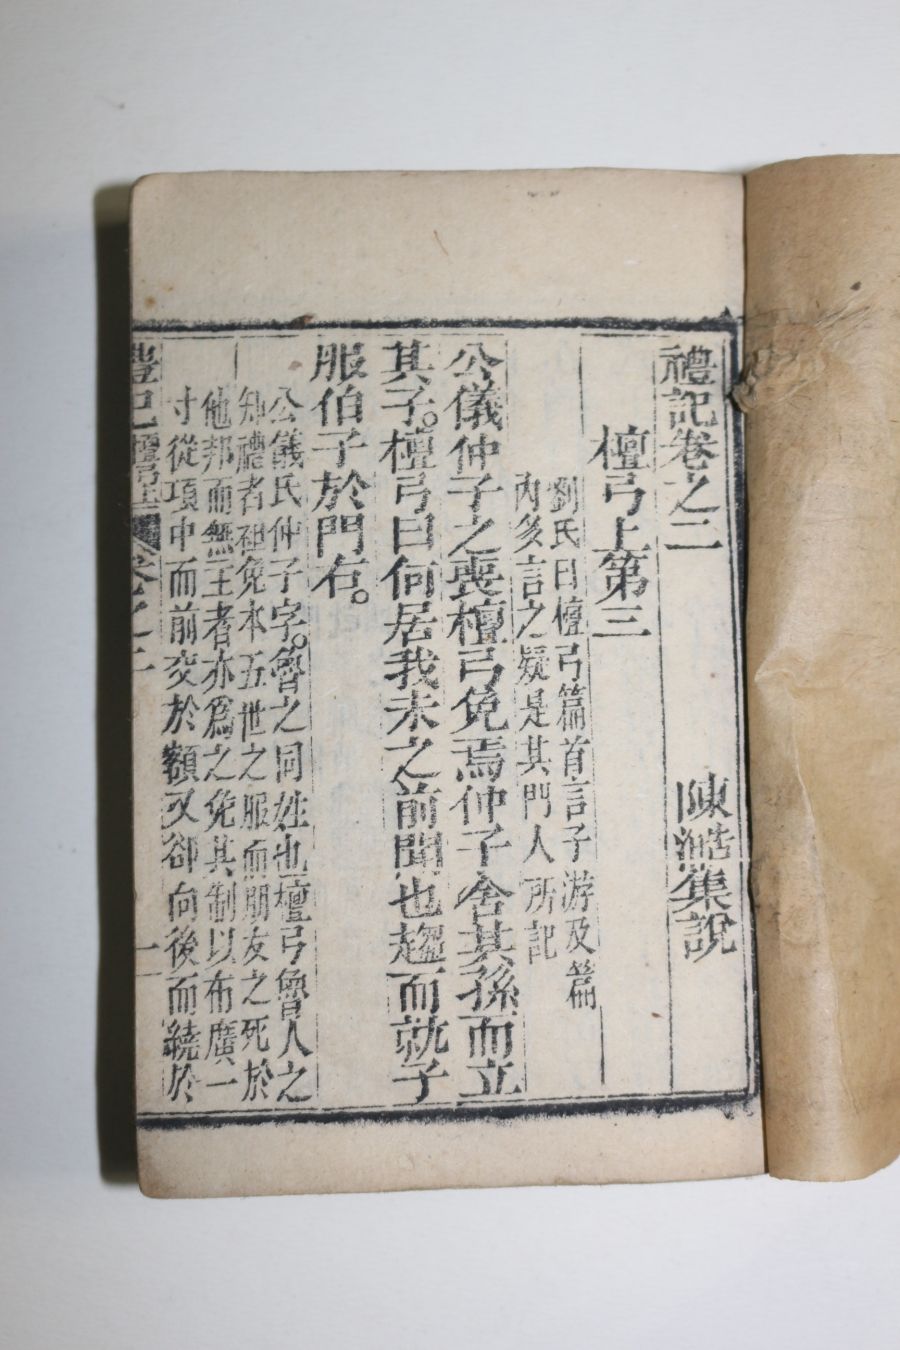 禮記卷之二
陳澔集說
檀弓上第三
劉氏曰檀弓篇首言子游及篇
內多言之疑是其門人所記
公儀仲子之喪檀弓免焉仲子舍其孫而立
其子。檀弓曰何居我未之前聞也趨而就子
服伯子於門右。
公儀氏仲子字。魯之同姓也檀弓魯人之
知禮者袒免本五世之服而朋友之死於
他邦而無主者亦爲之免其制以布廣一
寸從項中而前交於額又卻向後而繞於
禮記檀弓上 卷之二 一